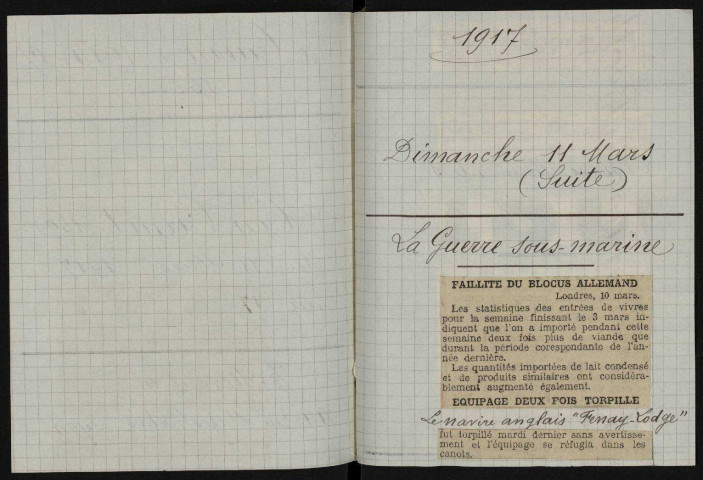 1917
Dimanche 11 Mars
(Suite)
La Guerre sous-marine
FAILLITE DU BLOCUS ALLEMAND
Londres, 10 mars.
Les statistiques des entrées de vivres
pour la semaine finissant le 3 mars in-
diquent que l'on a importé pendant cette
semaine deux fois plus de viande que
durant la période corespondante de l'an-
née dernière.
Les quantités importées de lait condensé
et de produits similaires ont considéra-
blement augmenté également.
EQUIPAGE DEUX FOIS TORPILLE
Le navire anglais "Fenay-Lodge"
fut torpillé mardi dernier sans avertisse-
ment et l'équipage se réfugia dans les
canots.